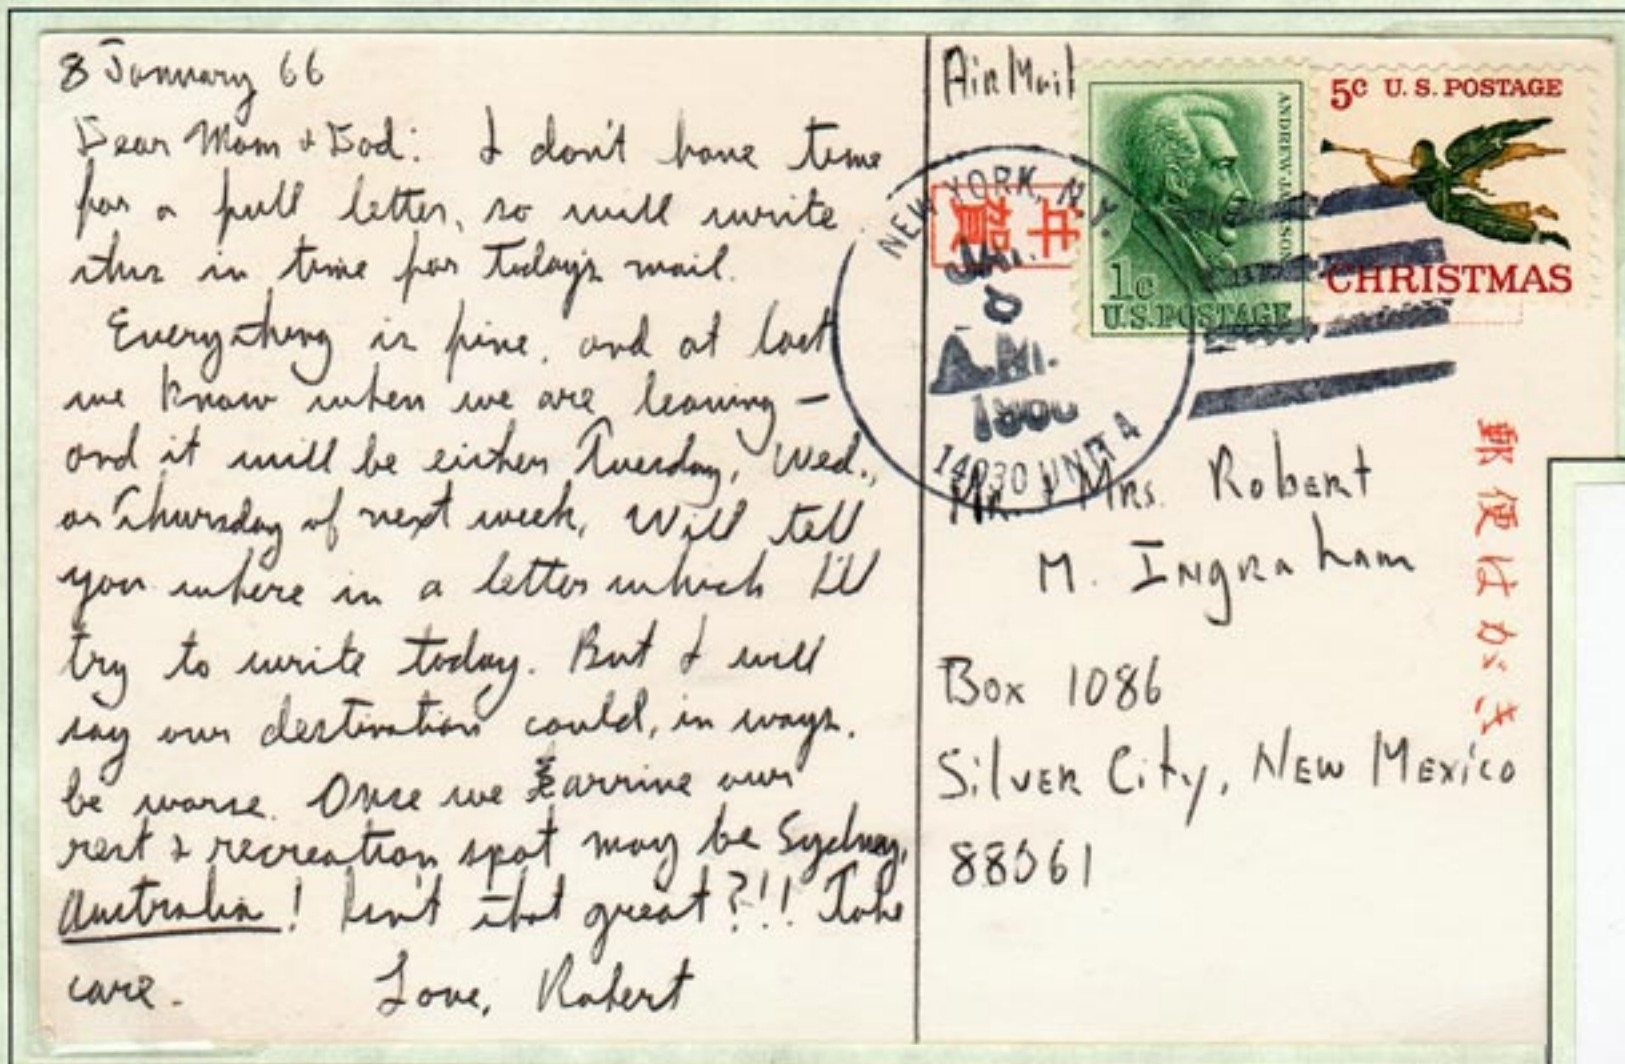 8 January 66
Dear Mom & Dad: I don't have time
for a full letter, so will write
this in time for today's mail.
Everything is fine, and at last
we know when we are leaving —
and it will be either Tuesday, Wed.,
or Thursday of next week. Will tell
you where in a letter which I'll
try to write today. But I will
say our destination could, in ways,
be worse. Once we arrive our
rest & recreation spot may be Sydney,
Australia! Isn't that great?!! Take
care. Love, Robert
Air Mail
年賀
ANDREW JACKSON
1c
U.S. POSTAGE
5c U.S. POSTAGE
CHRISTMAS
NEW YORK, N.Y.
A.M.
14030 UNIT A
郵便はがき
Mr. & Mrs. Robert
M. Ingraham
Box 1086
Silver City, New Mexico
88061